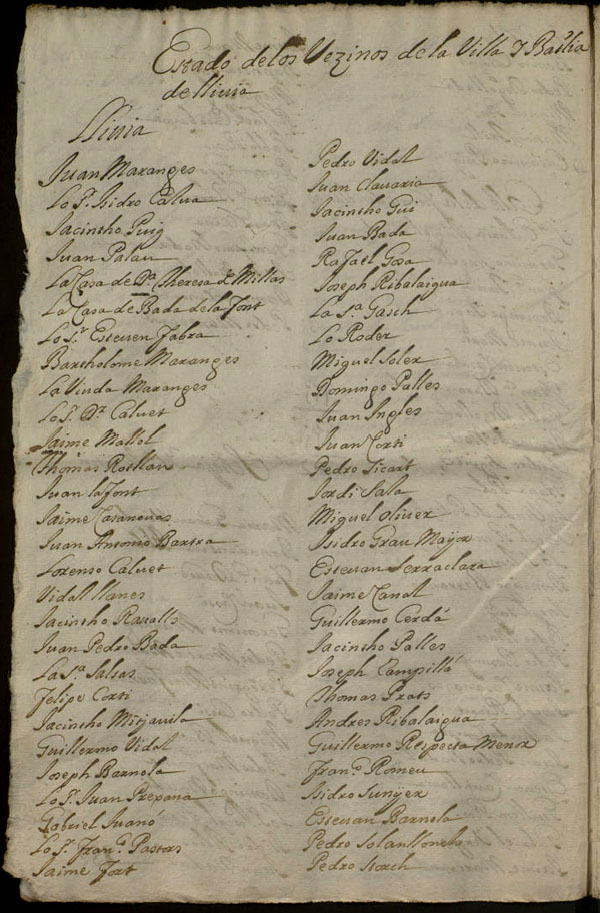 Estado delos Vezinos de la Villa y Bailia
de llivia
Llivia
Juan Maranges
Lo Sr. Isidro Calva
Jacintho Puig
Juan Palau
La Casa de Da. Theresa de Millas
La Casa de Bada de la Font
Lo Sr. Estevan Fabra
Bartholome Maranges
La Viuda Maranges
Lo Sr. Dr. Calvet
Jaime Mallol
Thomas Rosillan
Juan lafont
Jaime Casanovas
Juan Antonio Bartra
Lorenso Calvet
Vidal llanes
Jacintho Ravalls
Juan Pedro Bada
La Sa. Salsas
Felipe Corti
Jacintho Mitjavila
Guillermo Vidal
Joseph Barnola
Lo Sr. Juan Prepana
Gabriel Juanó
Lo Sr. Franco. Pastors
Jaime Fort
Pedro Vidal
Juan Clavaria
Jacintho Gui
Juan Bada
Rafael Gosa
Joseph Ribalaigua
La Sa. Gasch
Lo Roder
Miguel Soler
Domingo Palles
Juan Ingles
Juan Corti
Pedro Sicart
Jordi Sala
Miguel Oliver
Isidro Grau Maijor
Estevan Serraclara
Jaime Canal
Guillermo Cerdá
Jacintho Palles
Joseph Campillá
Thomas Prats
Andres Ribalaigua
Guillermo Respecta Menor
Franco. Romeu
Isidro Sunyer
Estevan Barnola
Pedro Solanllonch
Pedro Storch